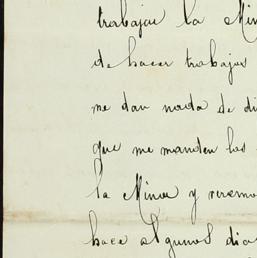 trabajar la Min
de hacer trabajos
me dan nada de di
que me manden los
la Mina y veremos
hace algunos dias